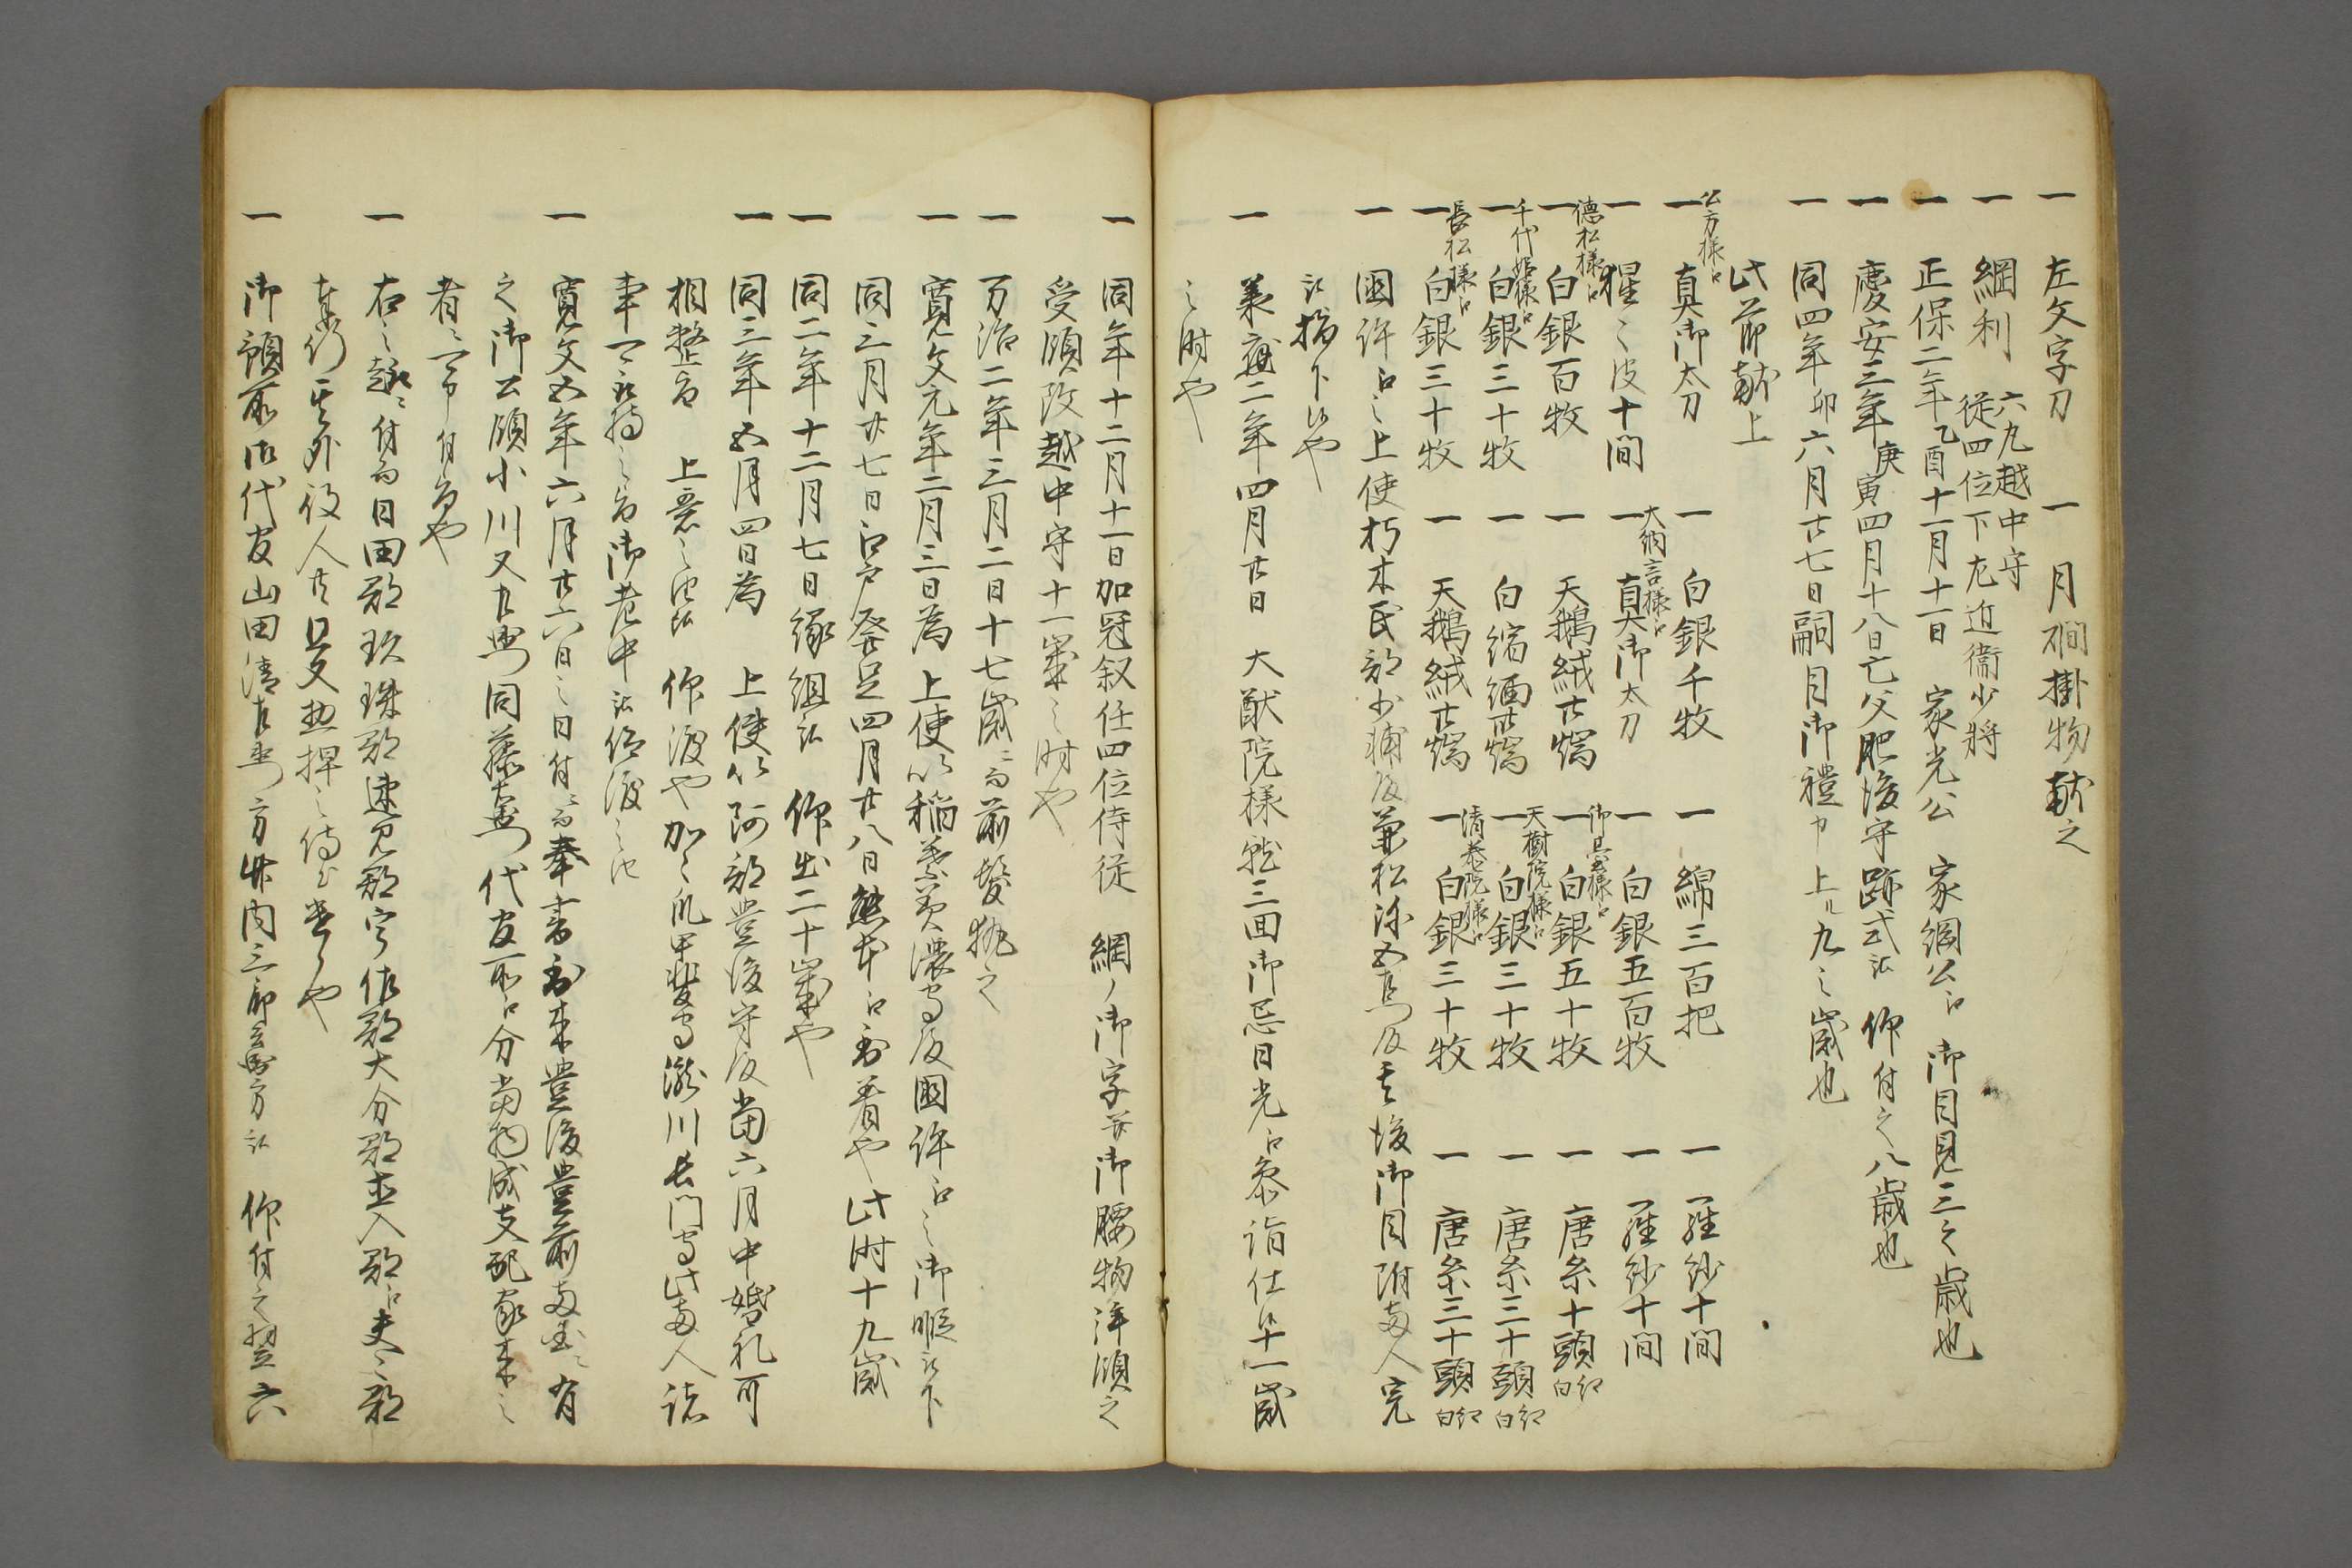 一 左文字刀 一 月礀掛物 献之
一 綱利 六丸越中守
従四位下左近衛少将
一 正保二年乙酉十一月十一日 家光公 家綱公江 御目見三之歳也
一 慶安三年庚寅四月十八日亡父肥後守跡式被 仰付之八歳也
一 同四年卯六月廿七日嗣目御禮申上ル九之歳也
此節献上
公方様江
一 真御太刀 一 白銀千枚 一 綿三百把 一 羅紗十間
一 猩々皮十間
大納言様江
一 真御太刀 一 白銀五百枚 一 羅紗十間
徳松様江
一 白銀百枚 一 天鵝絨廿端
御臺様江
一 白銀五十枚 一 唐糸十頭白紅
千代姫様江
一 白銀三十枚 一 白縮緬廿端
天樹院様江
一 白銀三十枚 一 唐糸三十頭白紅
長松様江
一 白銀三十枚 一 天鵝絨廿端
清泰院様江
一 白銀三十枚 一 唐糸三十頭白紅
一 國許江之上使朽木民部少輔殿兼松弥五左衛門殿其後御目附両人完
被指下候也
一 承應二年四月廿日 大猷院様就三回御忌日光江参詣仕候十一歳
之時也
一 同年十二月十一日加冠叙任四位侍従 綱ノ御字并御腰物拝領之
受領改越中守十一歳之時也
一 万治二年三月二日十七歳ニ而前髪執之
一 寛文元年二月三日為 上使以稲葉美濃守殿國許江之御暇被下
同三月廿七日江戸発足四月廿八日熊本江到着也此時十九歳
一 同二年十二月七日縁組被 仰出二十歳也
一 同三年五月四日為 上使以阿部豊後守殿当六月中婚礼可
相整旨 上意之由被 仰渡也加々爪甲斐守瀧川長門守此両人諸
事可取持之旨御老中被仰渡之由
一 寛文五年六月廿六日之日付ニ而奉書到来豊後豊前両国ニ有
之御公領小川又左衛門同藤左衛門代官所江分当物成支配家来之
者ニ可申付旨也
一 右之趣ニ付而日田郡玖珠郡速見郡宇佐郡大分郡直入郡江夫々郡
奉行其外役人共 差
一 御領所御代官山田清左衛門方竹内三郎兵衛方被 仰付之翌六